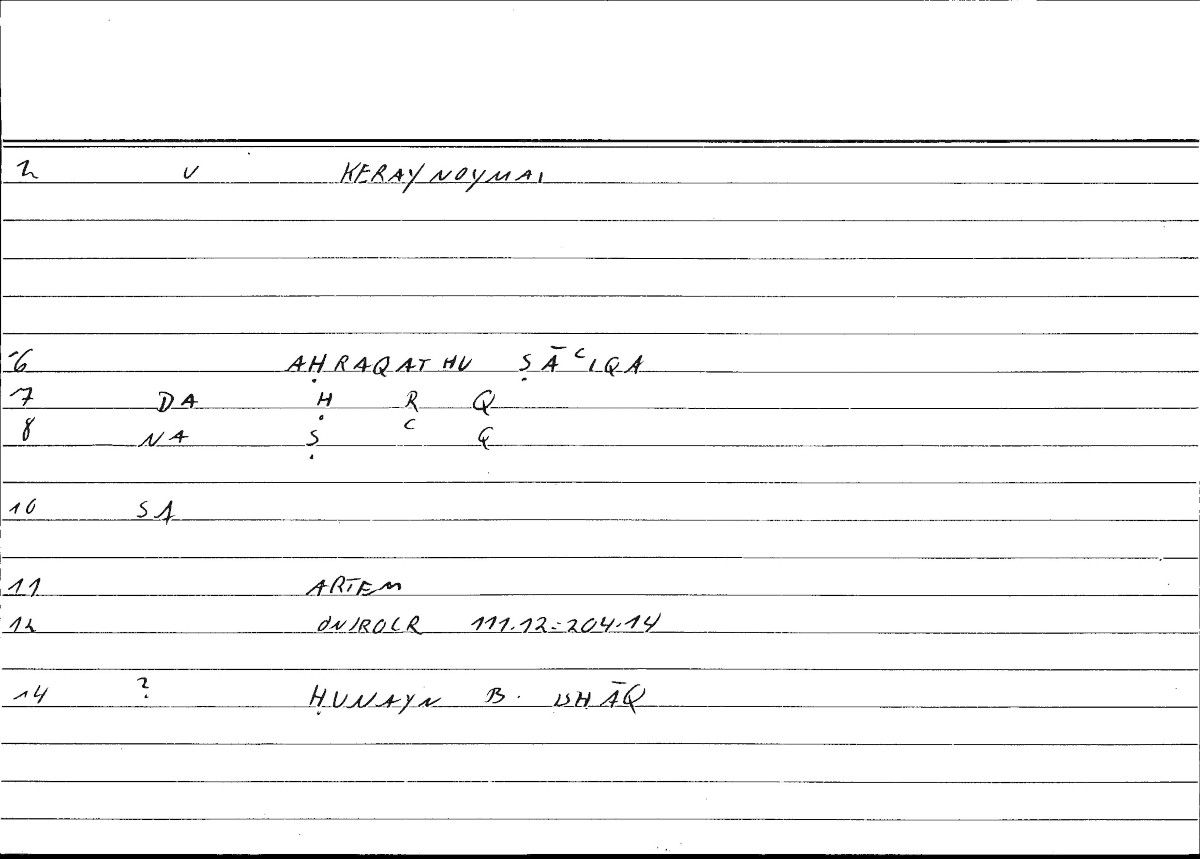 2 V KERAYNOYMAI
6 AḤRAQATHU ṢĀCIQA
7 DA Ḥ R Q
8 NA Ṣ C Q
10 SA
11 ARTEM
12 ONIROCR 111.12=204.14
14 ? ḤUNAYN B. ISHĀQ